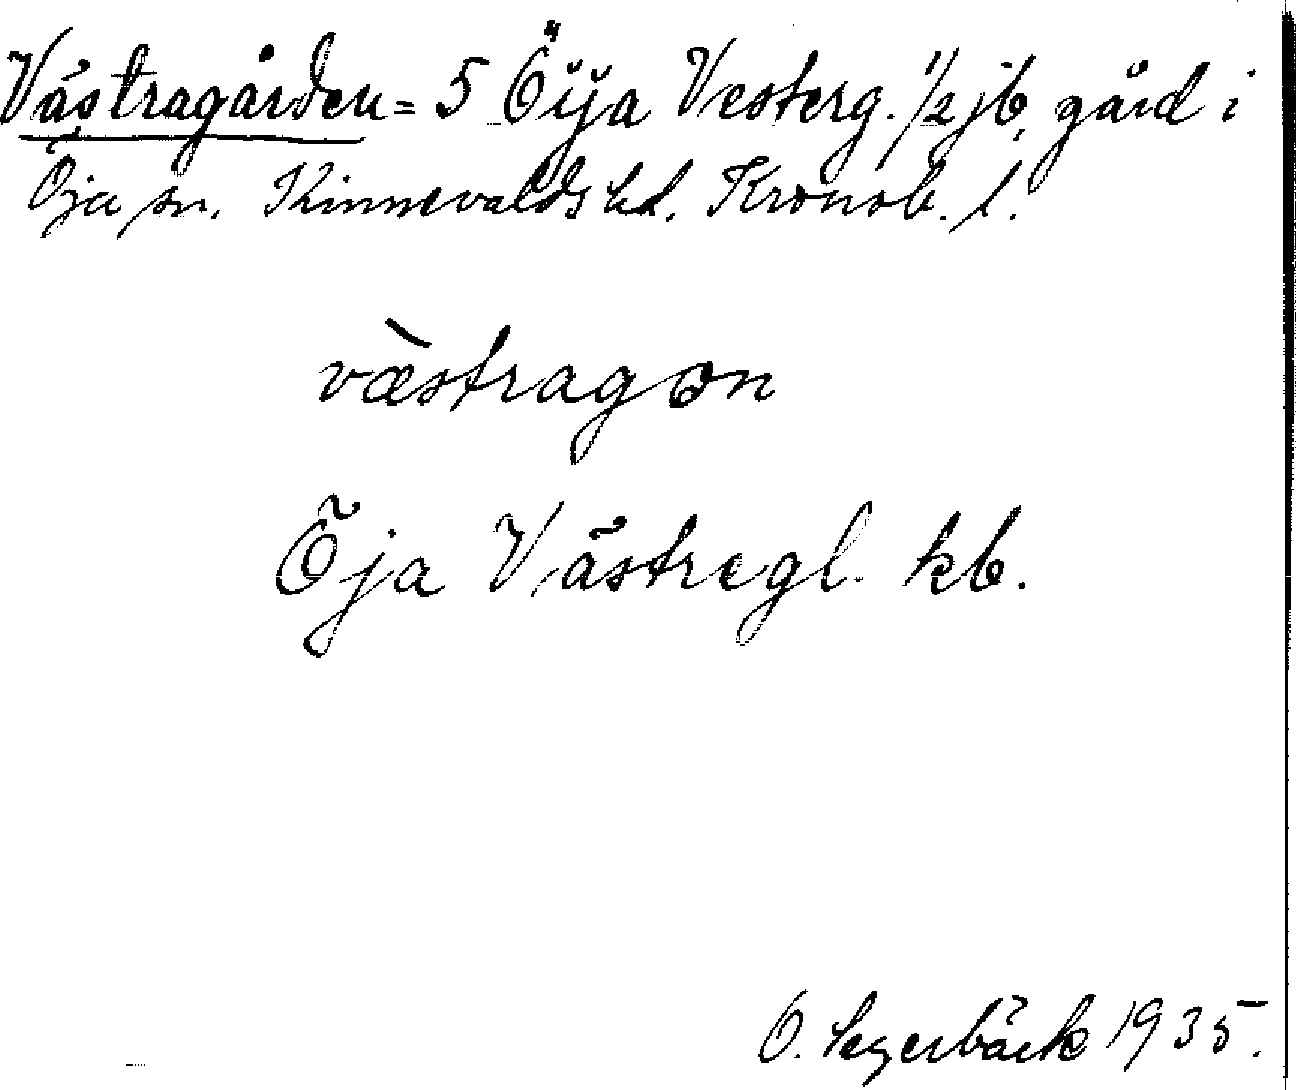 Västragården = 5 Öija Vesterg. 1/2 jb. gård i
Öja sn. Kinnevalds hd. Kronob. l.
væ̀stragɷn
Öja Västregl. kb.
O. Segerbäck 1935.